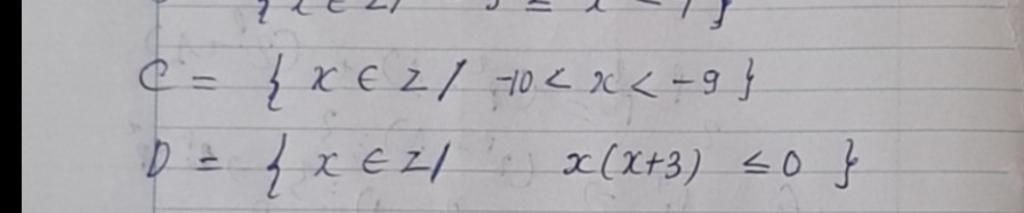 C = { x ∈ Z / -10 < x < -9 }
D = { x ∈ Z / x(x+3) ≤ 0 }